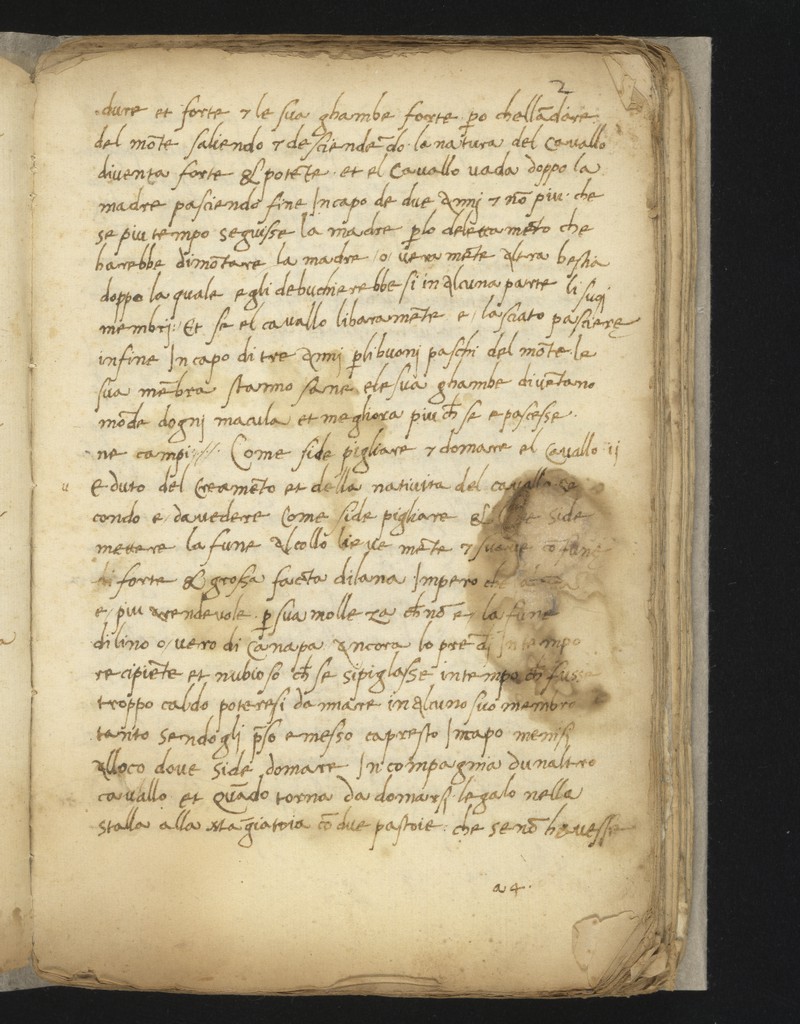 2
dure et forte & le sua ghambe forte ꝑo chellādare
del mōte saliendo & desciendēdo. la natura del Cavallo
diventa forte & potēte. et el Cavallo vada doppo la
madre pasciendo fine Incapo de due Annj & nō piu. che
se piu tempo seguisse la madre ꝑlo delettamēto che
harebbe dimōtare la madre / o vera mēte Altra bestia
doppo la quale egli debucherebbesi in Alcuna parte li suoj
membrj: Et se el cavallo libaramēte e / lasciato pasciere
infine In capo di tre Annj ꝑlibuonj paschi del mōte. le
sua mēbra stanno sane, ele sua ghambe divētano
mōde dognj macula et meghiora piu ch̄ se e pascesse.
ne campi. Come side pigliare & domare el Cavallo ij
Eduto del Creamēto et della nativita del cavallo se
condo e / davedere Come side pigliare & side
mettere la fune Alcollo lieve mēte & suave cō fune
forte & grossa facta dilana Impero che
e / piu arrendevole. ꝑ sua molleza ch̄ nō e / la fune
dilino o / vero di Cānapa Ancora lo prēdj In tempo
recipiēte et nubioso ch̄ se sipiglasse intempo ch̄ fusse
troppo caldo poteresi dannare in Alcuno suo membro
tanto sendogli p̄so e messo capresto Incapo menisi
Alloco dove side domare In compagnia dunaltro
cavallo et Quādo torna da domarsi legalo nella
stalla alla māgiatoia cō due pastoie: che se nō havesse
a 4.